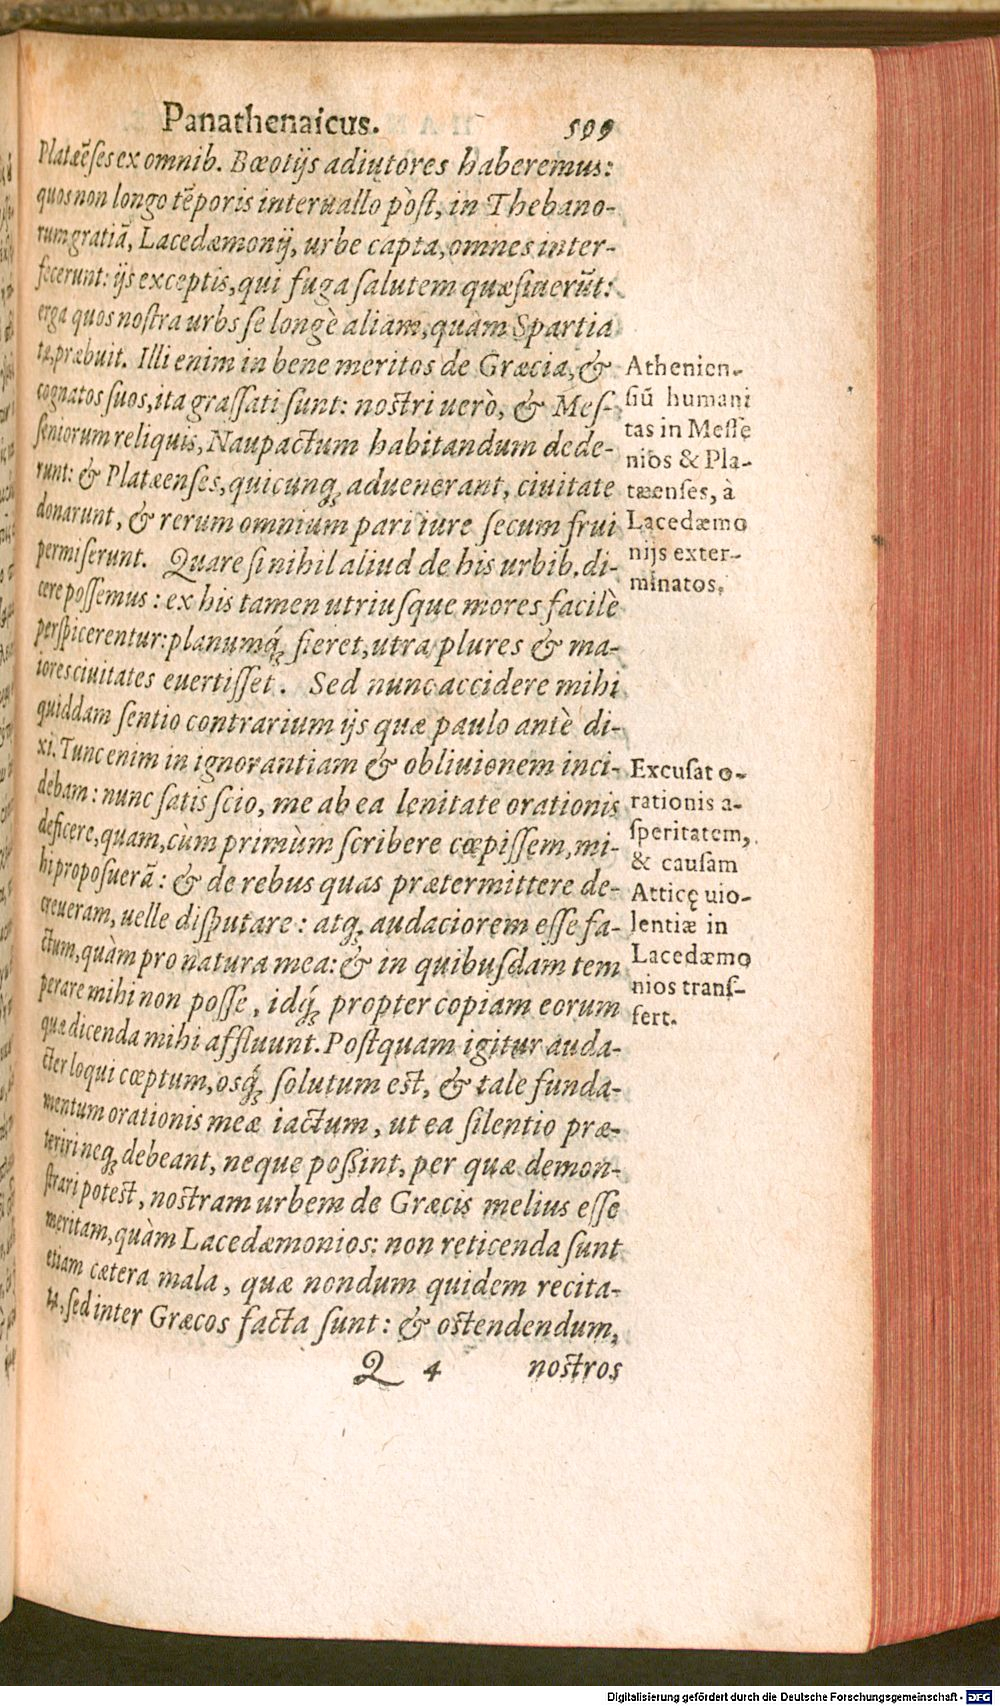 Panathenaicus. 599
Platæẽses ex omnib. Bœotijs adiutores haberemus:
quos non longo tẽporis interuallo pòst, in Thebano-
rum gratiã, Lacedæmonij, urbe capta, omnes inter-
fecerunt: ijs exceptis, qui fuga salutem quæsiuerũt:
erga quos nostra urbs se longè aliam, quàm Spartia
tæ, præbuit. Illi enim in bene meritos de Græcia, &
cognatos suos, ita grassati sunt: nostri uerò, & Mes-
seniorum reliquis, Naupactum habitandum dede-
runt: & Platæenses, quicunq; aduenerant, ciuitate
donarunt, & rerum omnium pari iure secum frui
permiserunt. Quare si nihil aliud de his urbib. di-
cere possemus: ex his tamen utriusque mores facilè
perspicerentur: planumq́; fieret, utra plures & ma-
iores ciuitates euertisset. Sed nunc accidere mihi
quiddam sentio contrarium ijs quæ paulo antè di-
xi. Tunc enim in ignorantiam & obliuionem inci-
debam: nunc satis scio, me ab ea lenitate orationis
deficere, quam, cùm primùm scribere cœpissem, mi-
hi proposuerã: & de rebus quas prætermittere de-
creueram, uelle disputare: atq; audaciorem esse fa-
ctum, quàm pro natura mea: & in quibusdam tem
perare mihi non posse, idq́; propter copiam eorum
quæ dicenda mihi affluunt. Postquam igitur auda-
cter loqui cœptum, osq́; solutum est, & tale funda-
mentum orationis meæ iactum, ut ea silentio præ-
teriri neq; debeant, neque possint, per quæ demon-
strari potest, nostram urbem de Græcis melius esse
meritam, quàm Lacedæmonios: non reticenda sunt
etiam cætera mala, quæ nondum quidem recita-
ta, sed inter Græcos facta sunt: & ostendendum,
Q 4 nostros
Athenien-
siũ humani
tas in Messe
nios & Pla-
tæenses, à
Lacedæmo
nijs exter-
minatos.
Excusat o-
rationis a-
speritatem,
& causam
Atticę uio-
lentiæ in
Lacedæmo
nios trans-
fert.
Digitalisierung gefördert durch die Deutsche Forschungsgemeinschaft - DFG